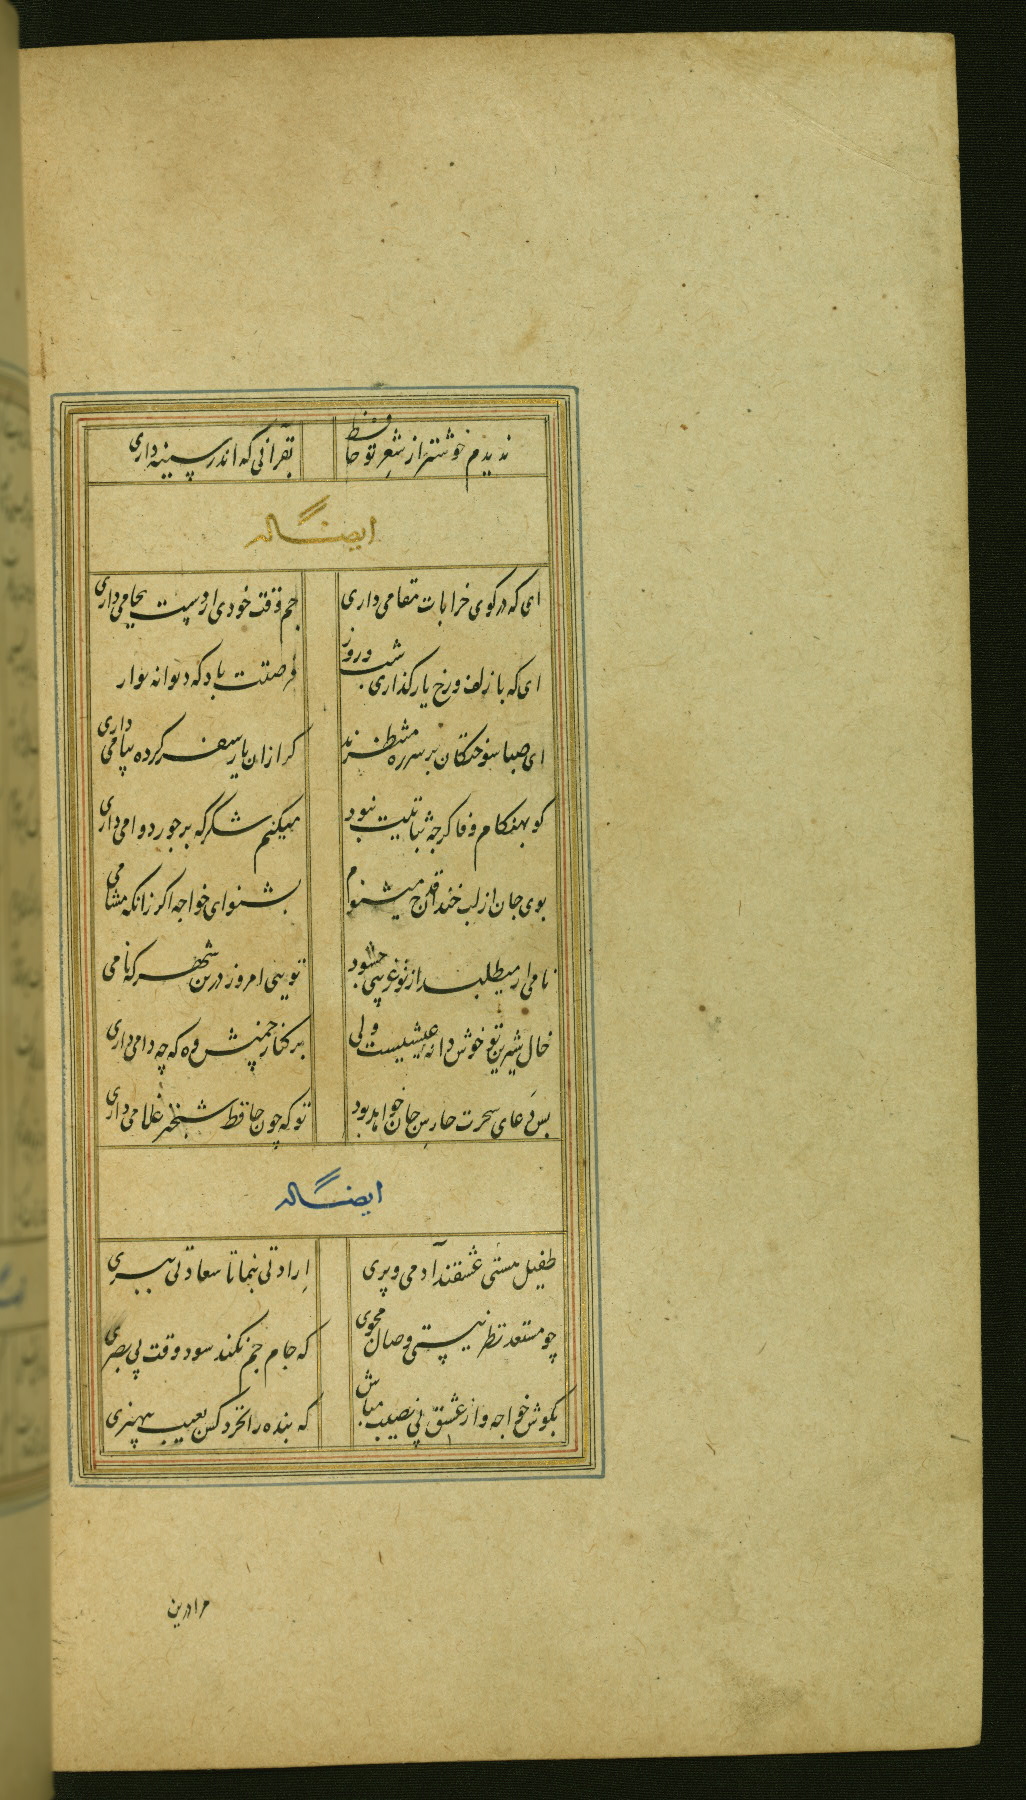 ندیدم خوشتر از شعر تو حافظ بقرآنی که اندر سینه داری
ایضاً له
ای که در کوی خرابات مقامی داری جم وقت خودی ار دست بجامی داری
ای که با زلف و رخ یار گذاری شب و روز فرصتت باد که دیوانه نوار
ای صبا سوختگان بر سر ره منتظرند کر ازان یار سفر کرده پیامی داری
کو بهنکام وفا کرچه ثباتیت نبود میکنم شکر که بر جور دوامی داری
بوی جان از لب خندان قدح میشنوم بشنو ای خواجه اکر زانکه مشامی
نامی ار میطلبد از تو غریبی چه شود تویی امروز درین شهر که نامی
خال شیرین تو خوش دانه عیشیست ولی بر کنار چمنش وه که چه دامی داری
بس دعای سحرت حارس جان خواهد بود تو که چون حافظ شبخیز غلامی داری
ایضاً له
طفیل هستی عشقند آدمی و پری ارادتی بنما تا سعادتی ببری
چو مستعد نظر نیستی وصال مجوی که جام جم نکند سود وقت بی بصری
بکوش خواجه و از عشق بی نصیب مباش که بنده را نخرد کس بعیب بیهنری
مرا درین